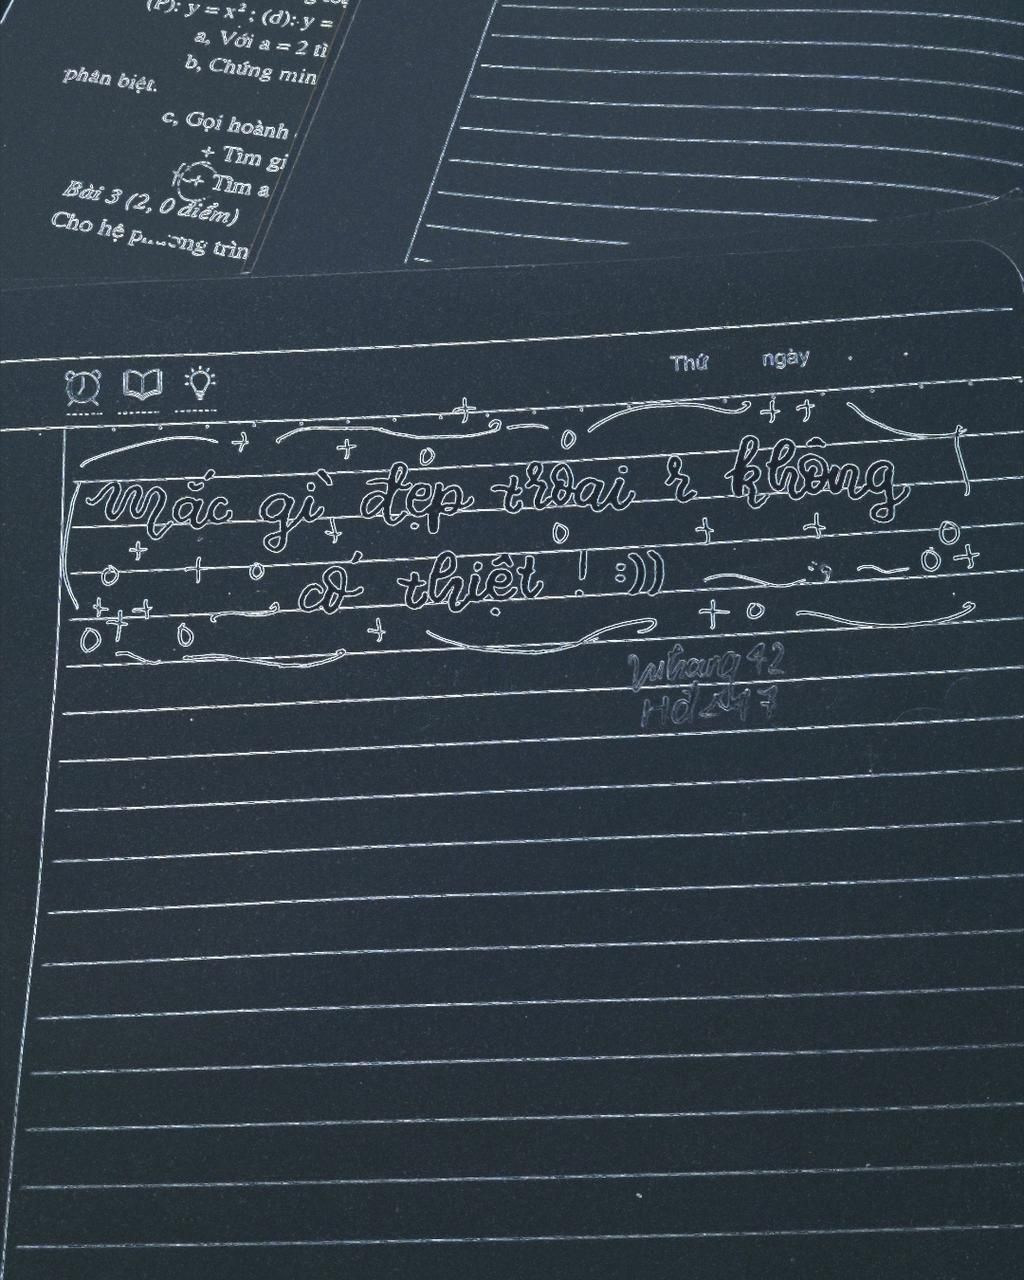 (P): y = x²; (d): y =
a, Với a = 2 tì
b, Chứng min
phân biệt.
c, Gọi hoành
+ Tìm gi
+ Tìm a
Bài 3 (2, 0 điểm)
Cho hệ phương trìn
Thứ ngày
mắc gì đẹp troai r không
có thiệt ! :)))